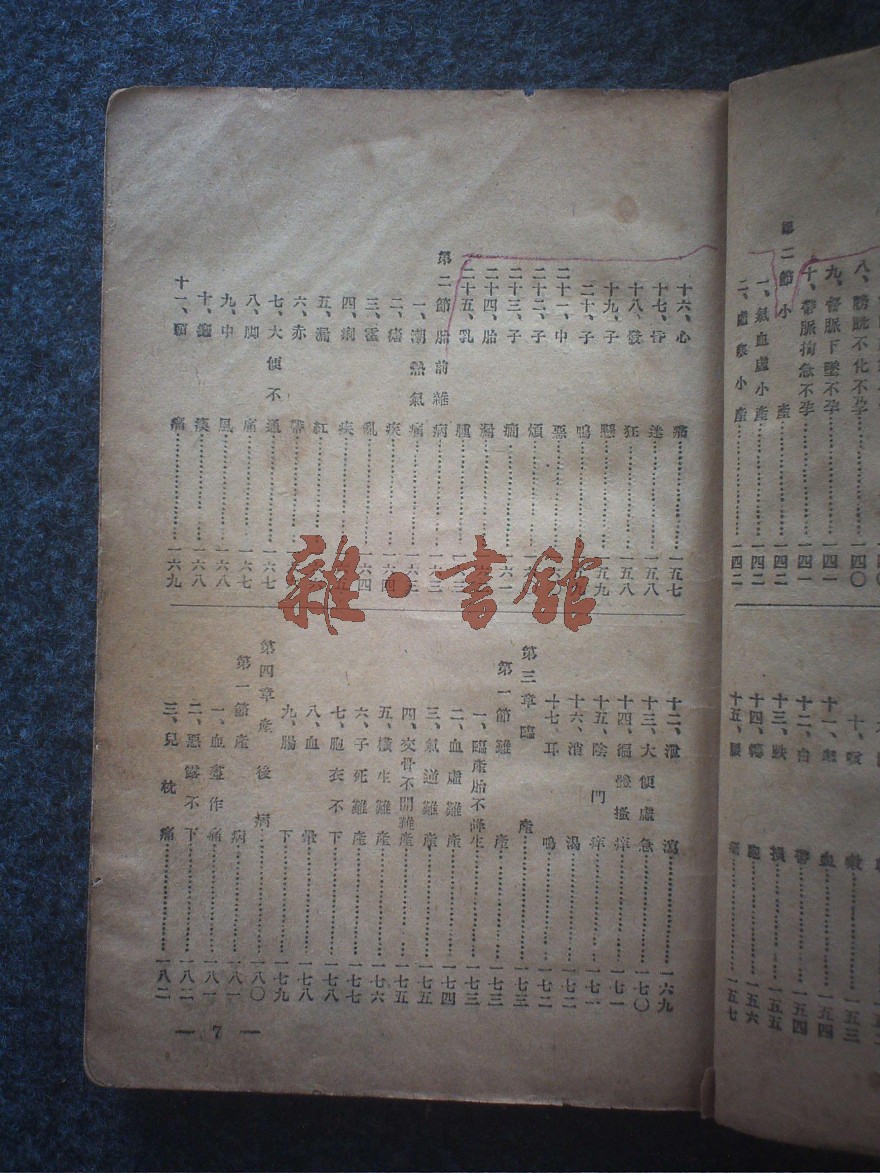 八、膀胱不化不孕……一四〇
九、督脈下墜不孕……一四一
十、帶脈拘急不孕……一四一
第二節小產……一四二
一、氣血虛小產……一四二
二、虛寒小產……一四二
十、咳嗽……一五三
十一、血……一五四
十二、白帶……一五四
十三、跌損……一五五
十四、胞……一五六
十五、腰痛……一五七
十六、心痛……一五七
十七、昏迷……一五八
十八、發狂……一五八
十九、子懸……一五九
二十、子鳴……
二十一、中惡……
二十二、子煩……
二十三、子癇……一六一
二十四、胎漏……
二十五、乳腫……
第二節胎前雜病……一六三
一、潮熱氣痛……
二、瘧疾……
三、霍亂……一六四
四、痢疾……
五、漏紅……
六、赤帶……
七、大便不通……一六七
八、脚痛……一六七
九、中風……一六八
十、……一六八
十一、頭痛……一六九
十二、泄瀉……一六九
十三、大便虛急……一七〇
十四、遍體搔痒……一七一
十五、陰門痒……一七一
十六、消渴……一七二
十七、耳鳴……一七二
第三章臨產……一七三
第一節難產……一七三
一、臨產胎不降生……一七三
二、血虛難產……一七四
三、氣逆難產……一七五
四、交骨不開難產……一七五
五、橫生難產……一七六
六、子死難產……一七七
七、胞衣不下……一七八
八、血暈……一七八
九、腸下……一七九
第四章產後病……一八〇
第一節產病……一八一
一、血塊作痛……一八一
二、惡露不下……一八二
三、兒枕痛……一八二
— 7 —
雜·書館